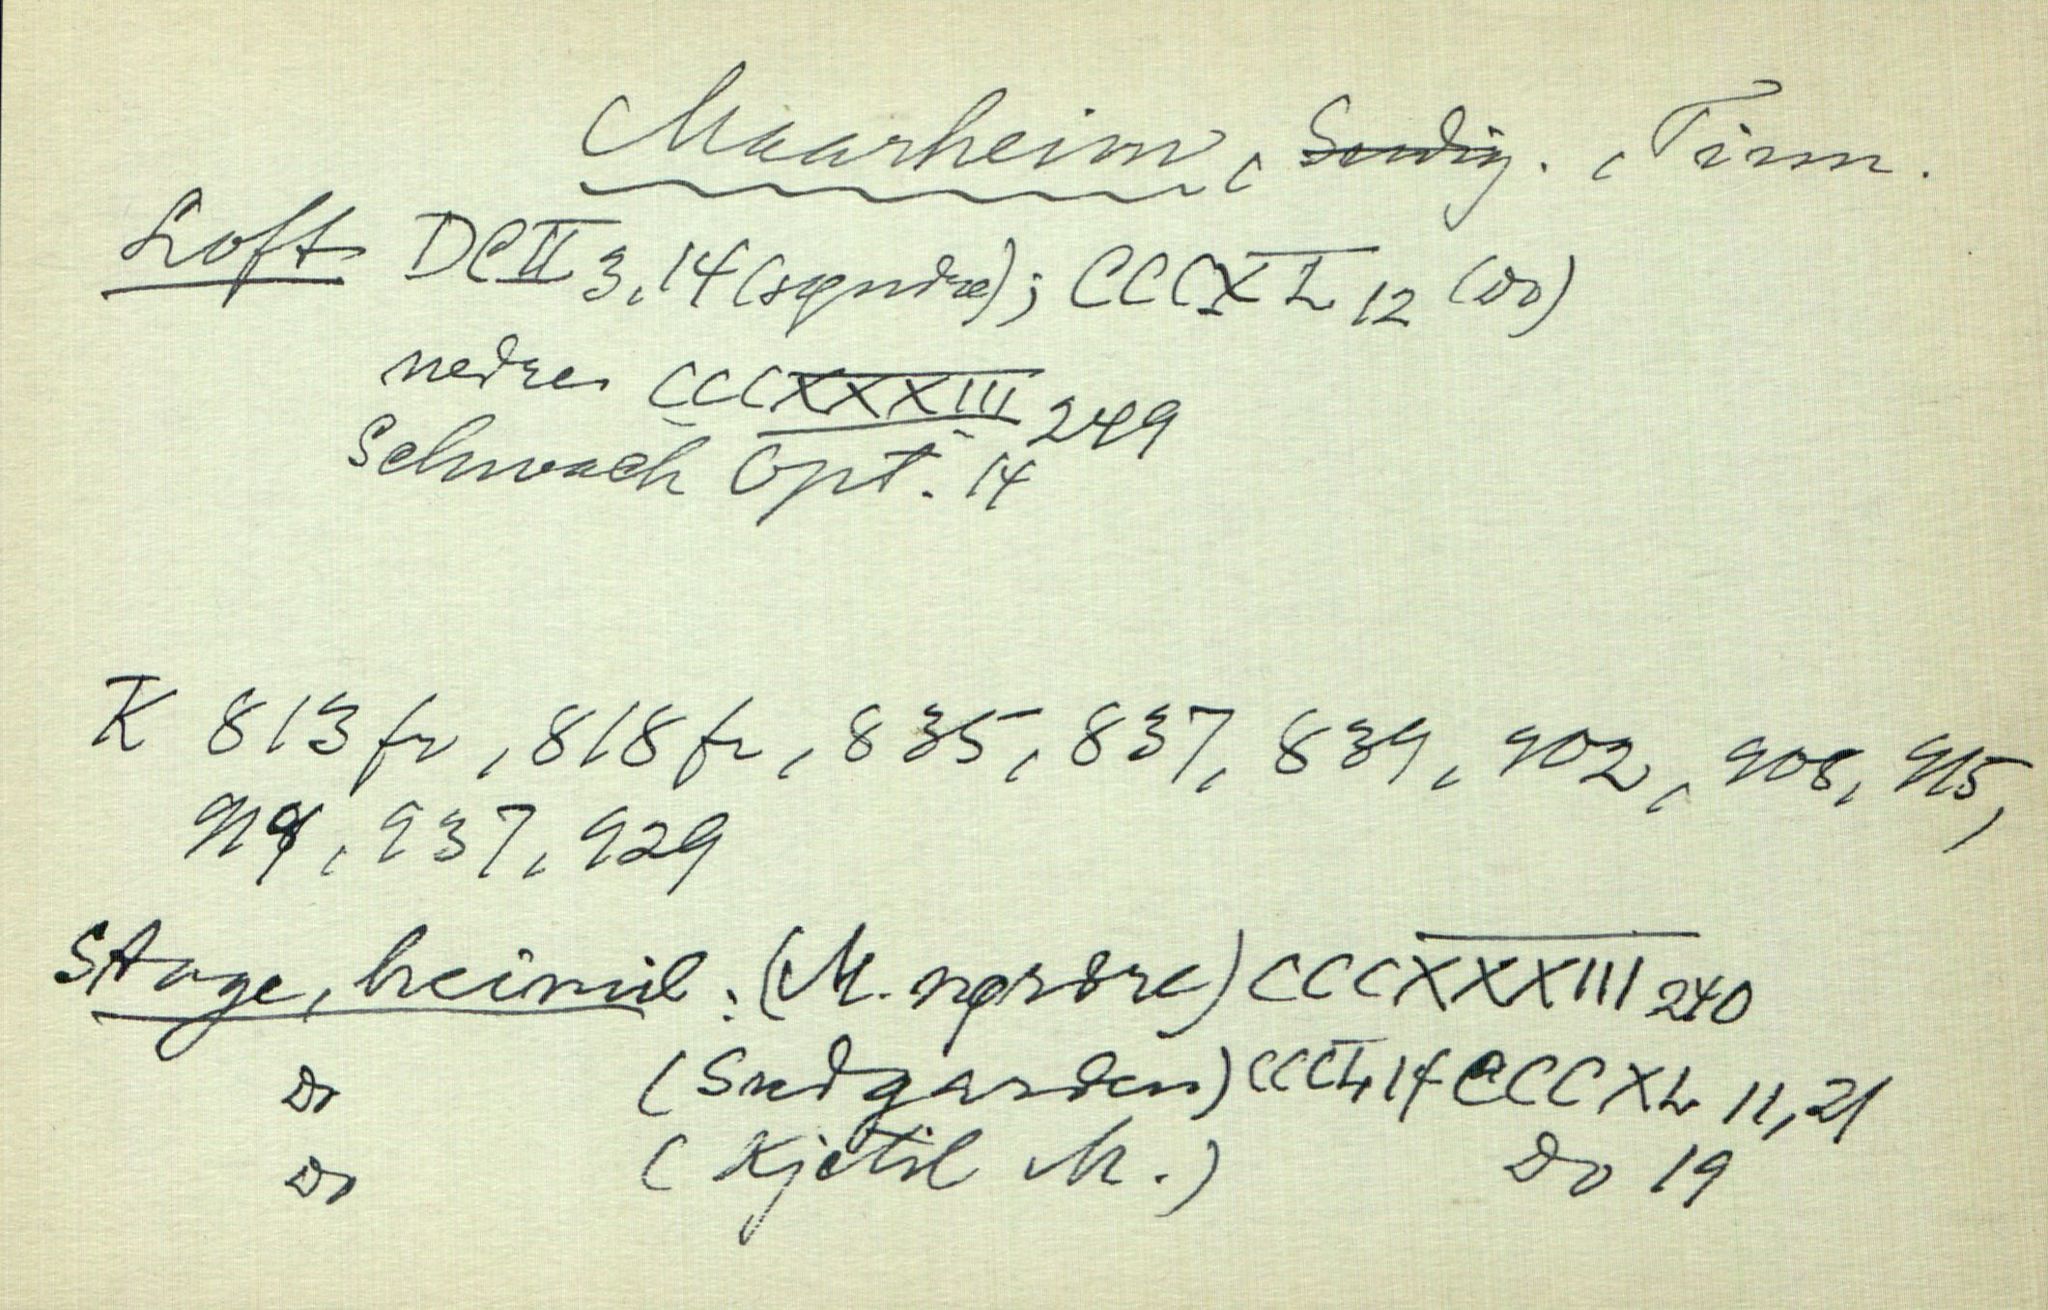 Maarheim, Sudig., Tinn.
Loft DCII 3, 14 (søndre); CCCXL 12 (Do)
nedre CCCXXXIII 249
Schwach Opt. 14
K 813 fr, 818 fr, 835, 837, 839, 902, 908, 915,
918, 937, 929
Stoge, heimil: (M. nørdre) CCCXXXIII 240
Do (Sudgarden) CCCL 14 CCCXL 11, 21
Do (Kjetil M.) Do 19